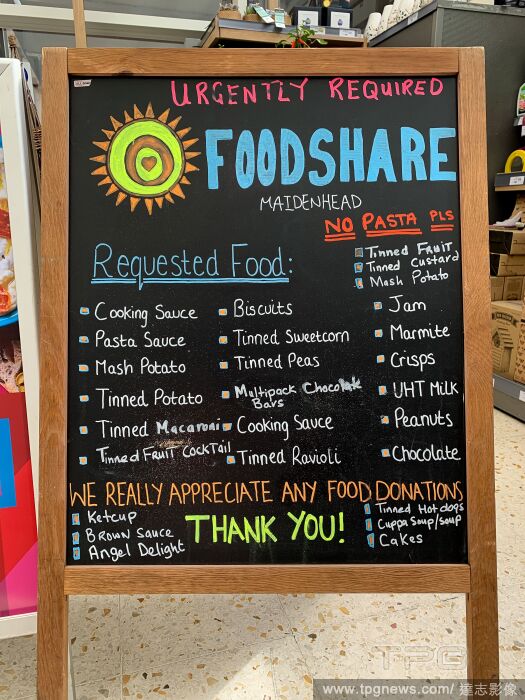 URGENTLY REQUIRED
FOODSHARE
MAIDENHEAD
NO PASTA PLS
Requested Food:
Tinned Fruit
Tinned Custard
Mash Potato
Cooking Sauce
Pasta Sauce
Mash Potato
Tinned Potato
Tinned Macaroni
Tinned Fruit Cocktail
Biscuits
Tinned Sweetcorn
Tinned Peas
Multipack Chocolate
Bars
Cooking Sauce
Tinned Ravioli
Jam
Marmite
Crisps
UHT Milk
Peanuts
Chocolate
WE REALLY APPRECIATE ANY FOOD DONATIONS
Ketcup
Brown Sauce
Angel Delight
THANK YOU!
Tinned Hotdogs
Cuppa Soup/soup
Cakes
TPG
www.tpgnews.com/達志影像